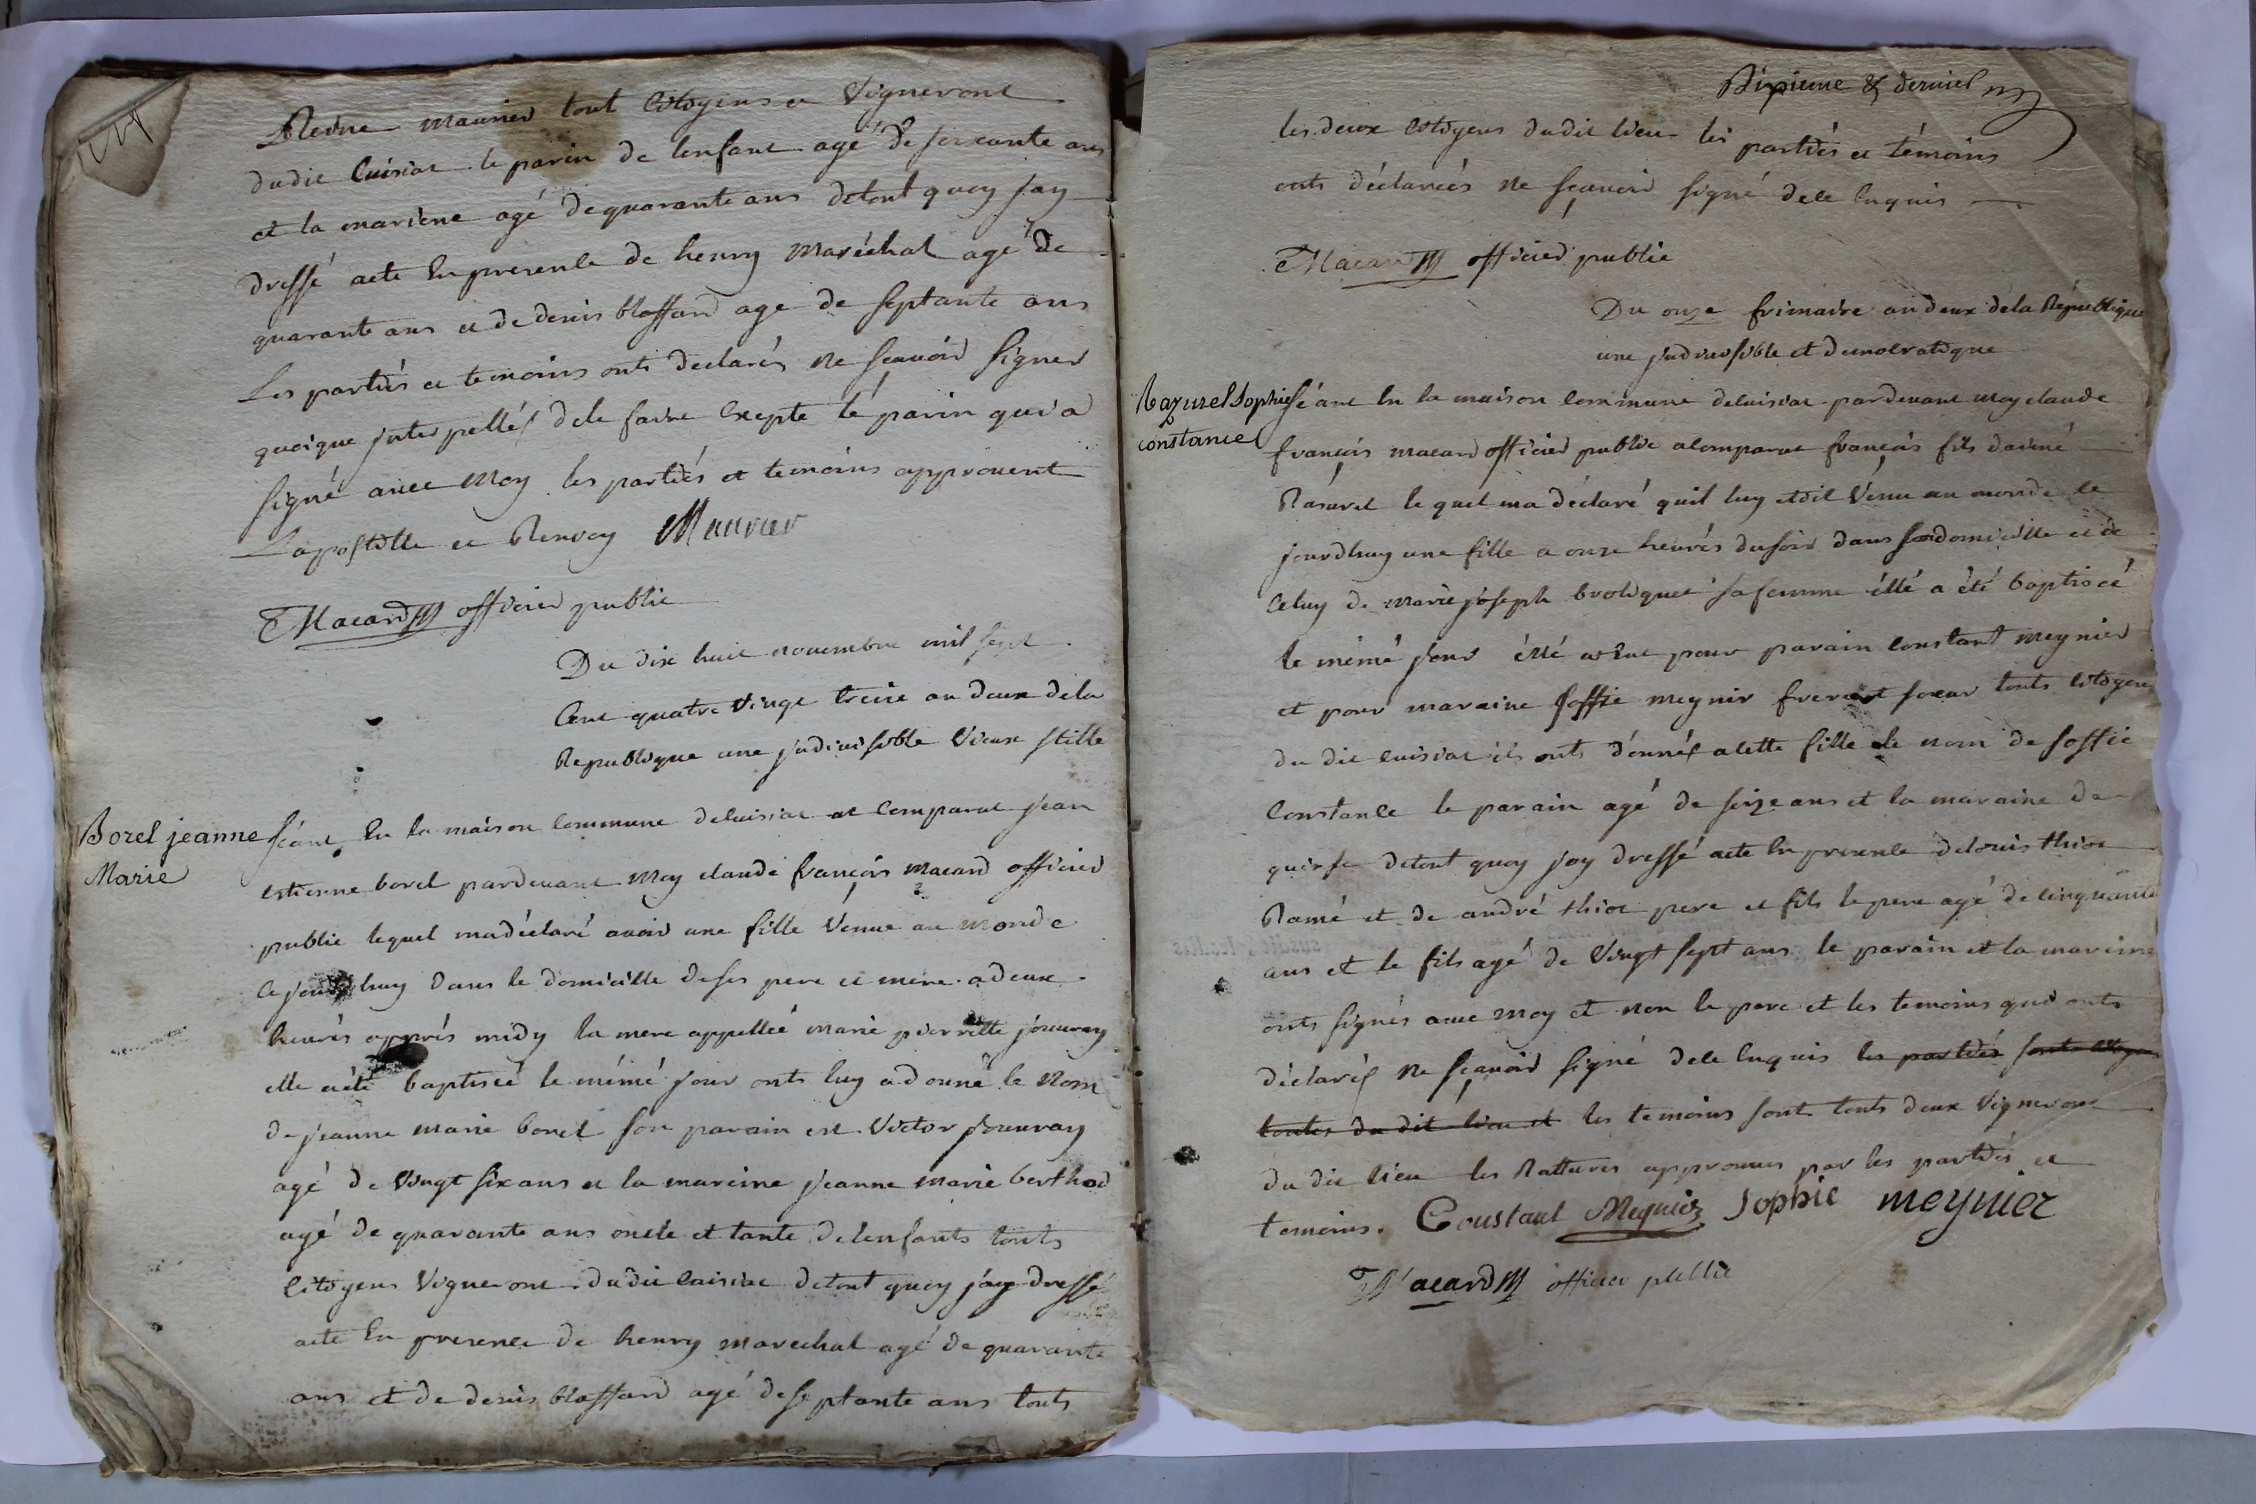 Reine maurier tout Citoyens et Vigneront
dudit Cuisiat le parin de lenfant agé de soixante ans
et la mareine agé de quarante ans detout quoy jay
dressé acte En presence de henry maréchal agé de
quarante ans et de denis blaffard age de septante ans
Les partiés et temoins onts declarés ne scauoir signer
quoique interpellés dele faire Excepte lé parin qui a
signé avec Moy les partiés et temoins approuvent
Lapostille et Renvoy Maurier
Macard officier public
Du dix huit novembre mil sept
Cent quatre Vingt treize an deux de la
Republique une jndiuisible Vieux stille
Borel jeanne
Marie
séant En la maison Commune decuisiat at Comparut jean
estienne borel pardevant Moy claude françois macard officier
public lequel madéclaré avoir une fille Venue au monde
Ce jourdhuy dans le domicille deses pere et mere a deux
heurés apprés midy la mere appelleé marie pierrette jouvray
elle aété baptiseé le mémé jour onts luy adonné le Nom
de jeanne marie borel son parain est Victor jouvray
agé de Vingt six ans et la mareine jeanne marie berthod
agé de quarante ans oncle et tante delenfants touts
Citoyens Vigneront dudit Cuisiat detout quoy jay dressé
acte En presence de henry marechal agé de quarante
ans et de denis blaffard agé de septante ans touts
Sixieme & dernier
les deux Citoyens dudit lieu les partiés et témoins
onts déclareés ne sçauoir signé dece Enquis
Macard officier public
Du onze frimaire an deux de la République
une jndiuisible et democratique
Razurel Sophie
constance
séant En la maison Commune decuisiat pardevant moy claude
françois macard officier public acomparut françois fils daimé
Rasurel le quel ma déclaré quil luy etoit Vénu au monde le
jourdhuy une fille a onze heurés dusoir dans sondomicille et de
Celuy de marie joseph broliquet sa femme éllé a été baptiseé
le mémé jour éllé a eut pour parain constant meynier
et pour maraine soffie meynir frere et soeur touts citoyens
du dit cuisiat ils onts donnés acette fille le nom de soffie
Constance le parain agé de seize ans et la maraine de
quinse detout quoy jay dressé acte En presence delouis thion
Ramé et de andré thion pere et fils le pere agé de cinquante
ans et le fils agé de Vingt sept ans le parain et la mareine
onts signés avec moy et non le pere et les temoins qui onts
déclarés ne sçavoir signé dece Enquis les partiés sonts citoyens
toutes du dit lieu et les temoins sont touts deux Vigneront
du dit lieu les Ratturés approuvés par les partiés et
temoins. Constant Meynier Sophie meynier
Macard officier public